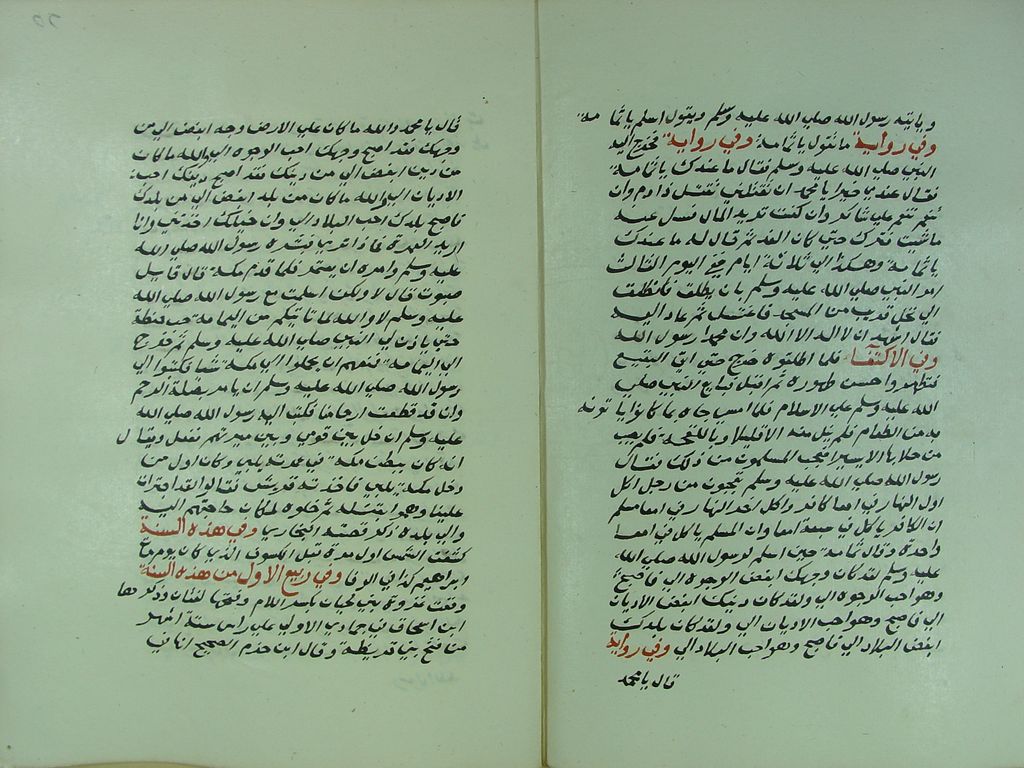 وياتيه رسول الله صلي الله عليه وسلم ويقول اسلم ياثما مة
وفي رواية ما تقول ياثمامة وفي رواية فخرج اليه
النبي صلي الله عليه وسلم فقال ما عندك ياثمامة
فقال عندي خير يا محمد ان تقتلني تقتل ذا دم وان
تنعم تنعم علي شاكر وان كنت تريد المال فسل عنه
ما شئت فترك حتي كان الغد ثم قال له ما عندك
ياثمامة وهكذا الي ثلاثة ايام ففي اليوم الثالث
امر النبي صلي الله عليه وسلم بان يطلق فانطلق
الي نخل قريب من المسجد فاغتسل ثم عاد اليه
فقال اشهد ان لا اله الا الله وان محمدا رسول الله
وفي الاكتفا فلما اطلقوه خرج حتي اتي البقيع
فتطهر واحسن طهوره ثم اقبل فبايع النبي صلي
الله عليه وسلم علي الاسلام فلما امسي جاه بما كانوا ياتونه
به من الطعام فلم ينل منه الا قليلا وباللقحة فلم يصب
من حلابها الا يسيرا فعجب المسلمون من ذلك فقال
رسول الله صلي الله عليه وسلم تعجبون من رجل اكل
اول النهار في امعا كافر واكل اخر النهار في امعا مسلم
ان الكافر ياكل في سبعة امعا وان المسلم ياكل في امعا
واحدة وقال ثمامة حين اسلم لرسول الله صلي الله
عليه وسلم لقد كان وجهك ابغض الوجوه الي فاصبح
وهو احب الوجوه الي ولقد كان دينك ابغض الاديان
الي فاصبح وهو احب الاديان الي ولقد كان بلدك
ابغض البلاد الي فاصبح وهو احب البلاد الي وفي رواية
قال يا محمد
قال يا محمد والله ما كان علي الارض وجه ابغض الي من
وجهك فقد اصبح وجهك احب الوجوه الي والله ما كان
من دين ابغض الي من دينك فقد اصبح دينك احب
الاديان الي والله ما كان من بلد ابغض الي من بلدك
فاصبح بلدك احب البلاد الي وان خيلك اخذتني وانا
اريد العمرة فماذا تري فبشره رسول الله صلي الله
عليه وسلم وامره ان يعتمر فلما قدم مكة قال قايل
صبوت قال لا ولكن اسلمت مع رسول الله صلي الله
عليه وسلم لا والله لما تاتيكم من اليمامة حب حنطة
حتي ياذن لي النبي صلي الله عليه وسلم ثم خرج
الي اليمامة فمنعهم ان يحملوا الي مكة شيا فكتبوا الي
رسول الله صلي الله عليه وسلم ان يامر بصلة الرحم
وان قد قطعت ارحامنا فكتب اليه رسول الله صلي الله
عليه وسلم ان خل بين قومي وبين ميرتهم ففعل ويقال
انه كان ببطن مكة في عمرته يلبي وكان اول من
دخل مكة يلبي فاخذته قريش فقالوا لقد اجترات
علينا وهموا بقتله ثم خلوه لمكان حاجتهم اليه
والي بلده ذكر قصته البخاري وفي هذه السنة
كسفت الشمس اول مرة قبل الكسوف الذي كان يوم موت
ابراهيم كذا في الوفا وفي ربيع الاول من هذه السنة
وقعت غزوة بني لحيان بكسر اللام وفتحها لغتان وذكرها
ابن اسحاق في جمادي الاولي علي راس ستة اشهر
من فتح بني قريظة وقال ابن حزم الصحيح انها في